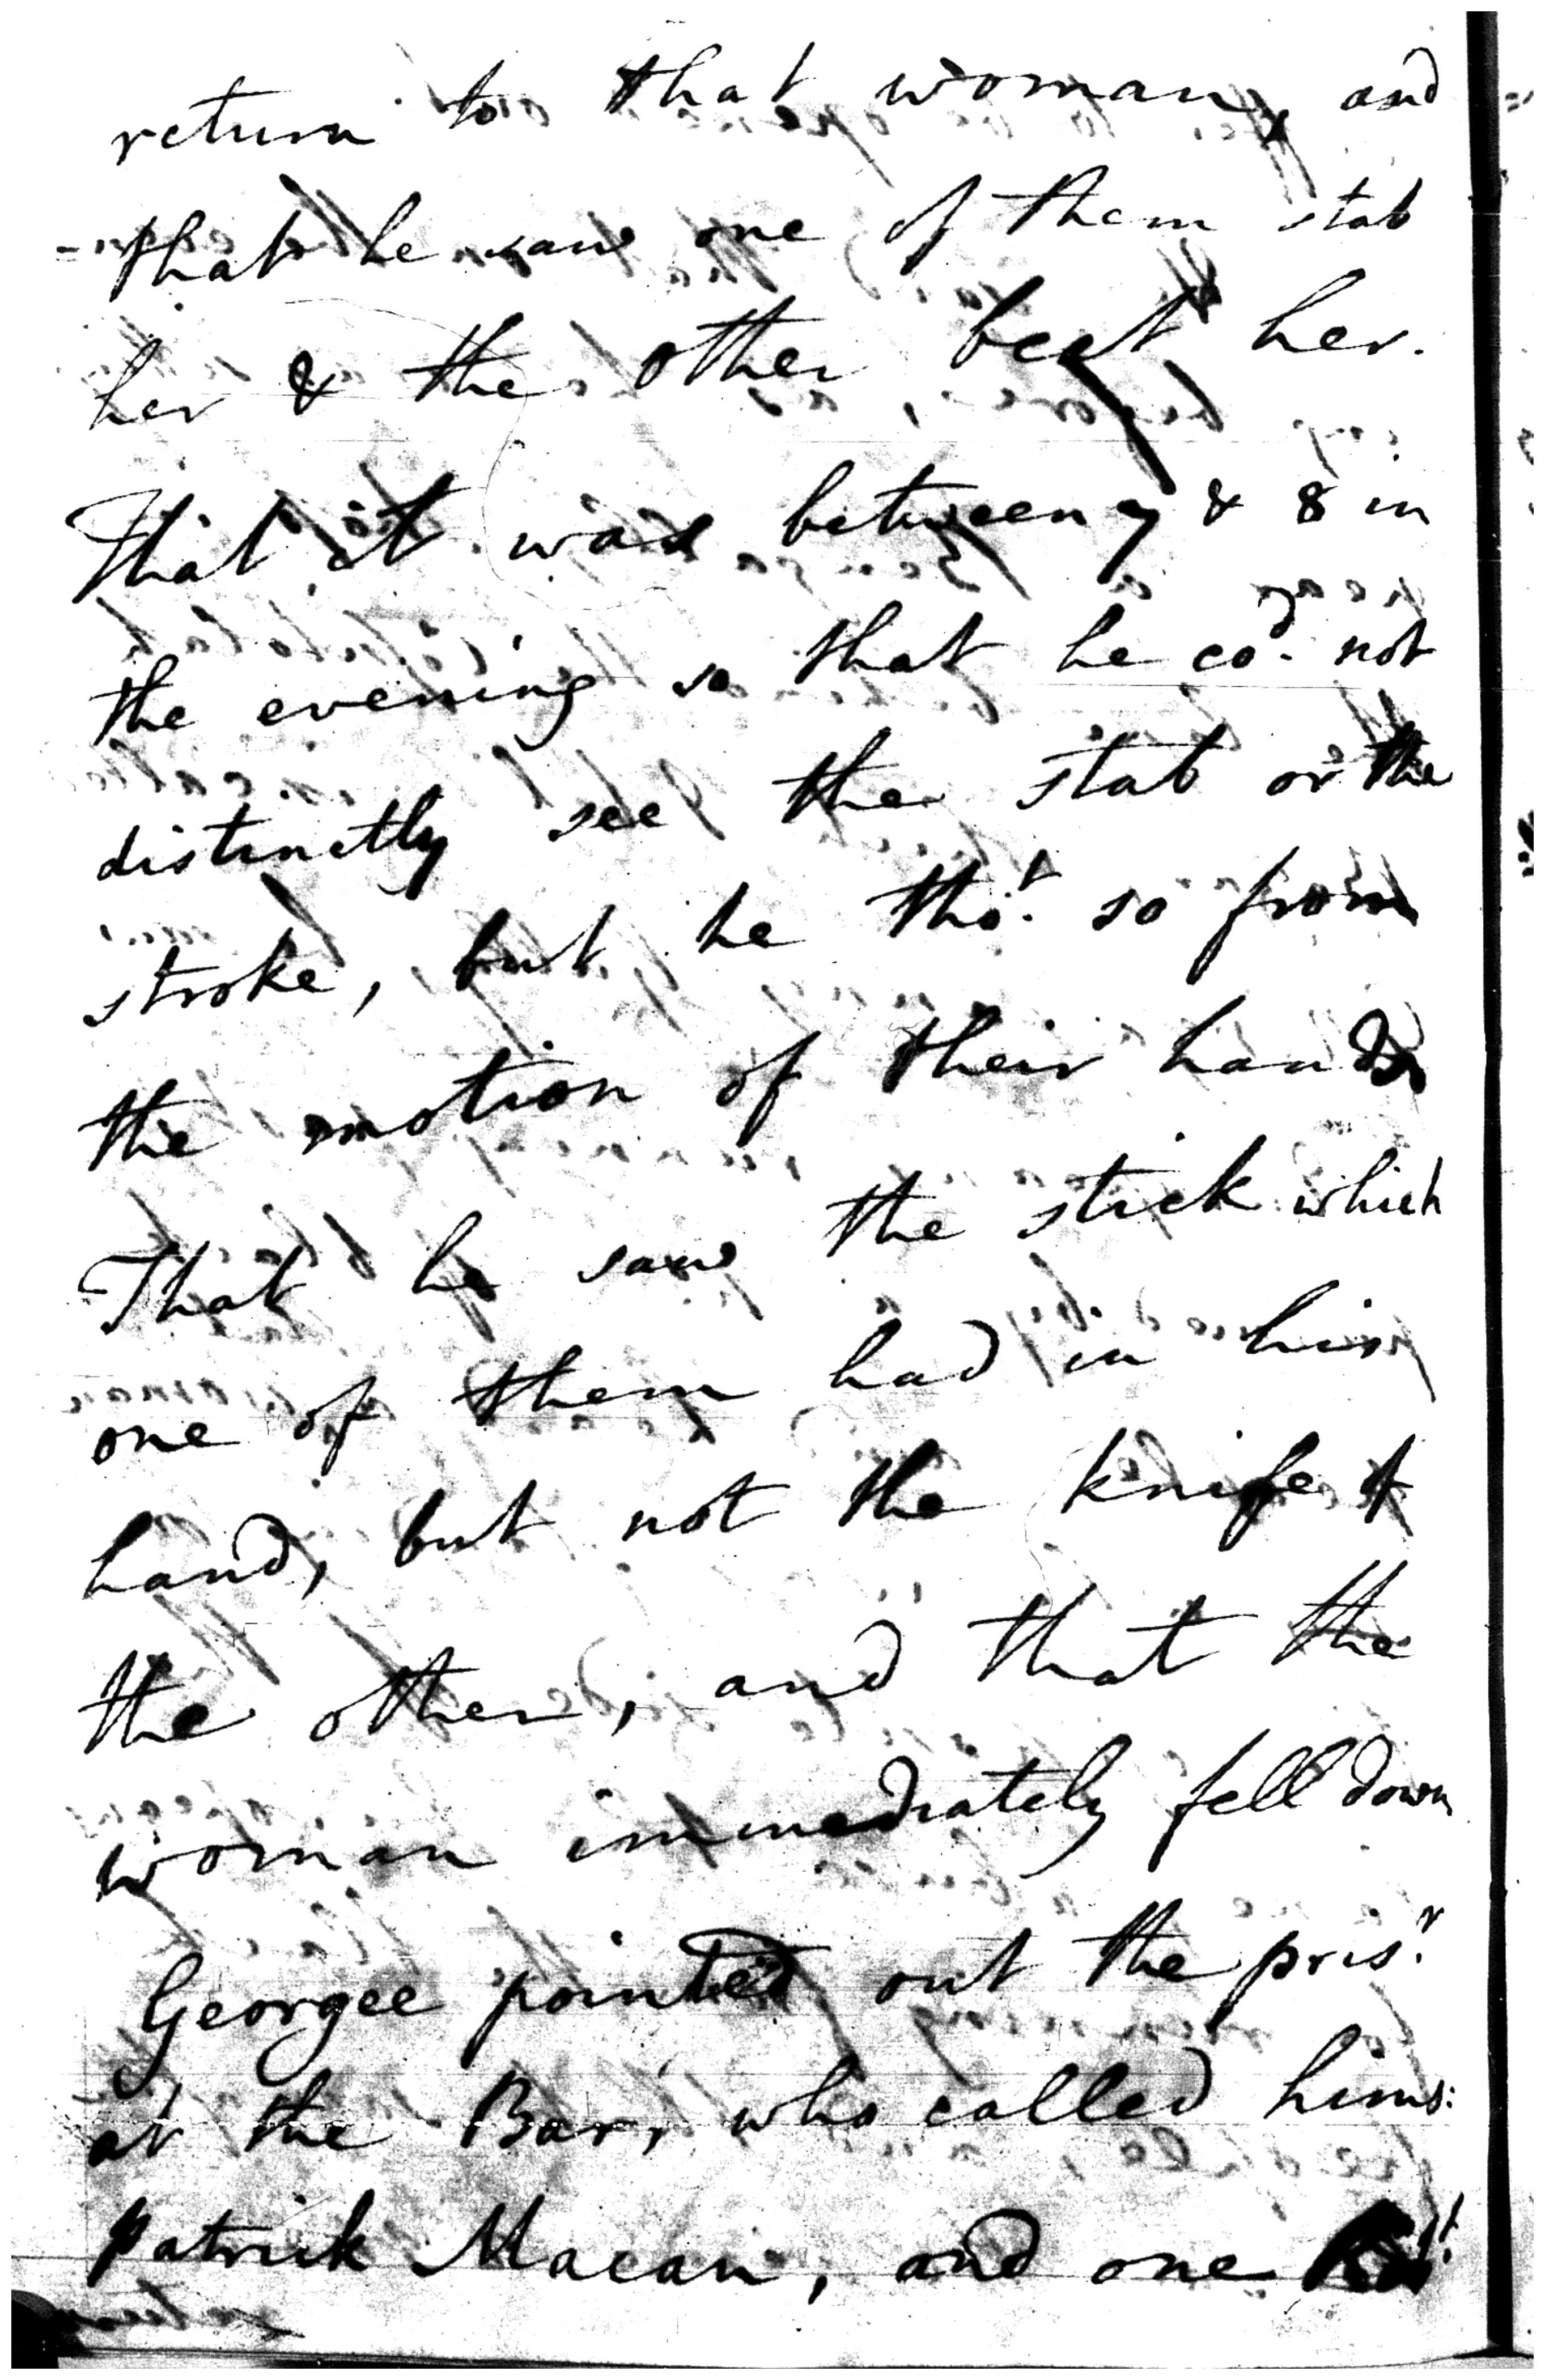 return to that woman, and
that he saw one of them stab
her & the other beat her.
That it was between 7 & 8 in
the evening so that he co.d not
distinctly see the stab or the
stroke, but he tho.t so from
the motion of their hands
That he saw the stick which
one of them had in his
hand, but not the knife of
the other, and that the
woman immediately fell down
Georgee pointed out the pris.r
at the Bar, who called hims:
Patrick Macan, and one